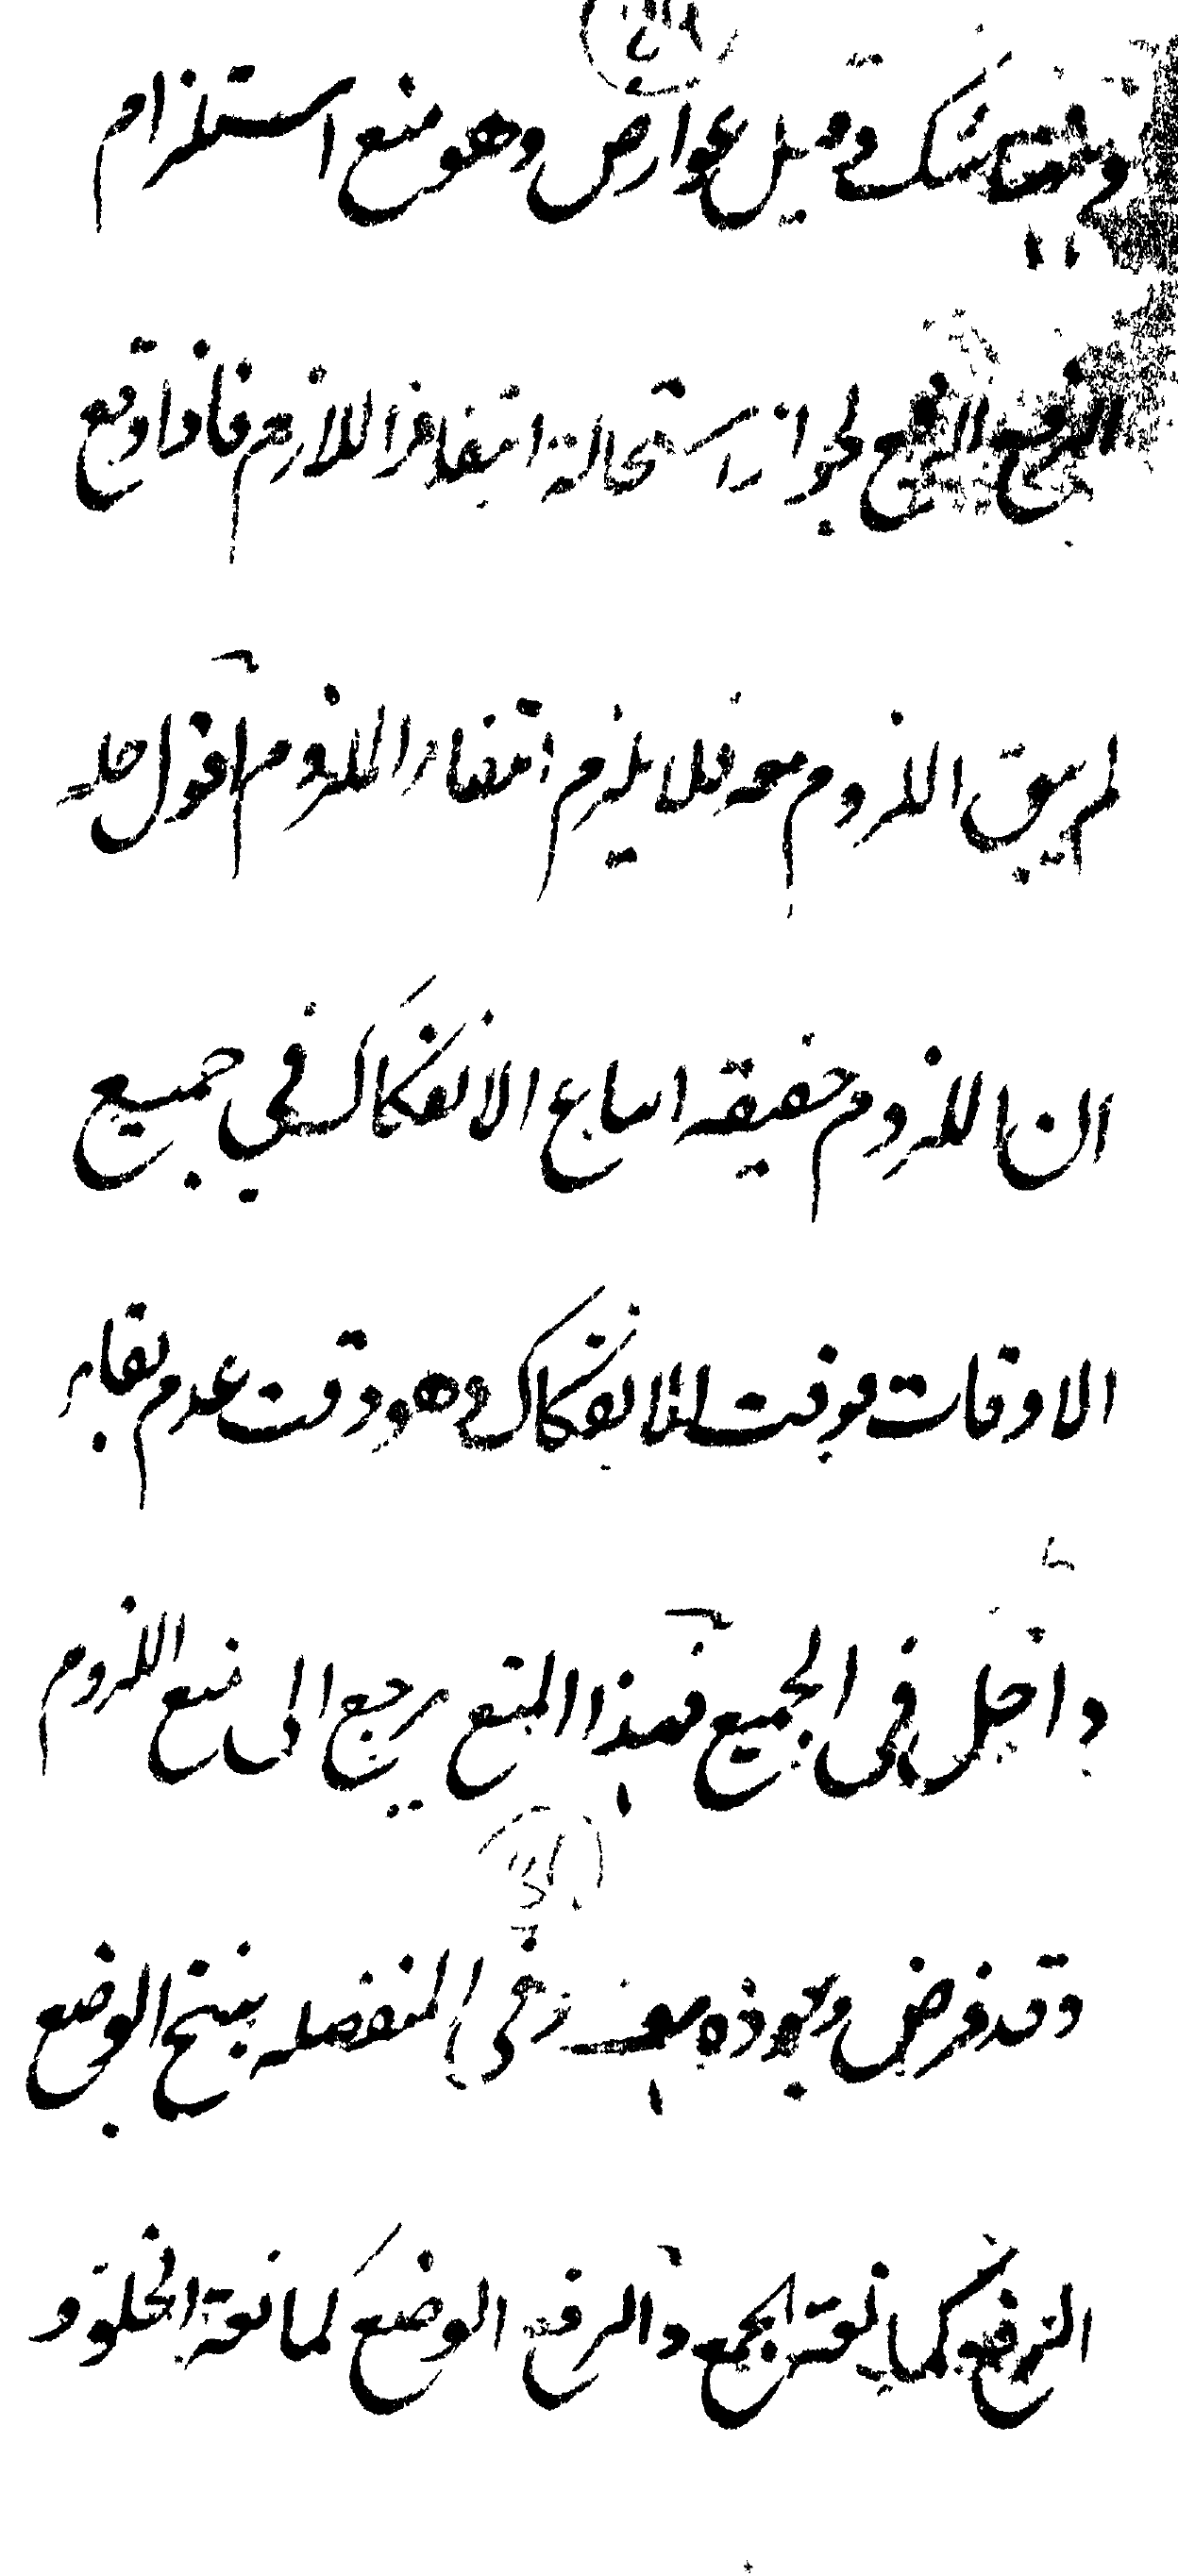 وههنا شك وقيل عوارض وهو منع استلزام
الرفع الرفع لجواز استحالة انتفاء اللازم فاذا وقع
لم يبق اللزوم معه فلا يلزم انتفاء الملزوم اقول حله
ان اللزوم حقيقه امتناع الانفكاك في جميع
الاوقات فوقت الانفكاك وهو وقت عدم بقايه
داخل في الجميع فهذا المنع يرجع الى منع اللزوم
وقد فرض وجوده هف وفي المنفصله ينتج الوضع
الرفع كمانعة الجمع والرفع الوضع كمانعة الخلو و